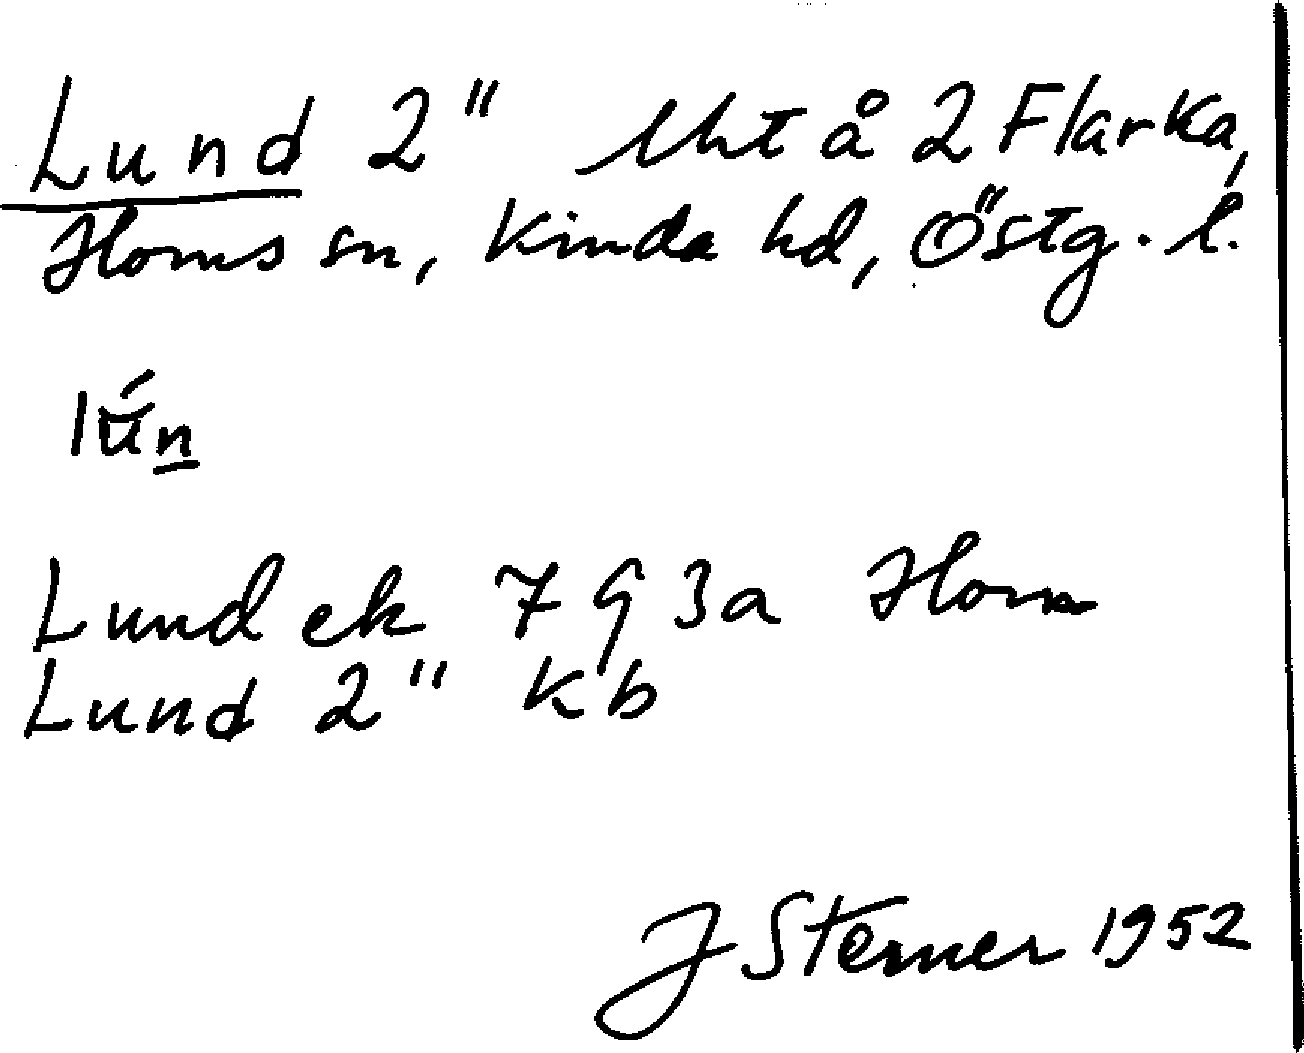 Lund 2" Uht å 2 Flarka,
Horns sn, Kinda hd, Östg. l.
lŭ́n
Lund ek 7 G 3a Horn
Lund 2" kb
J Sterner 1952